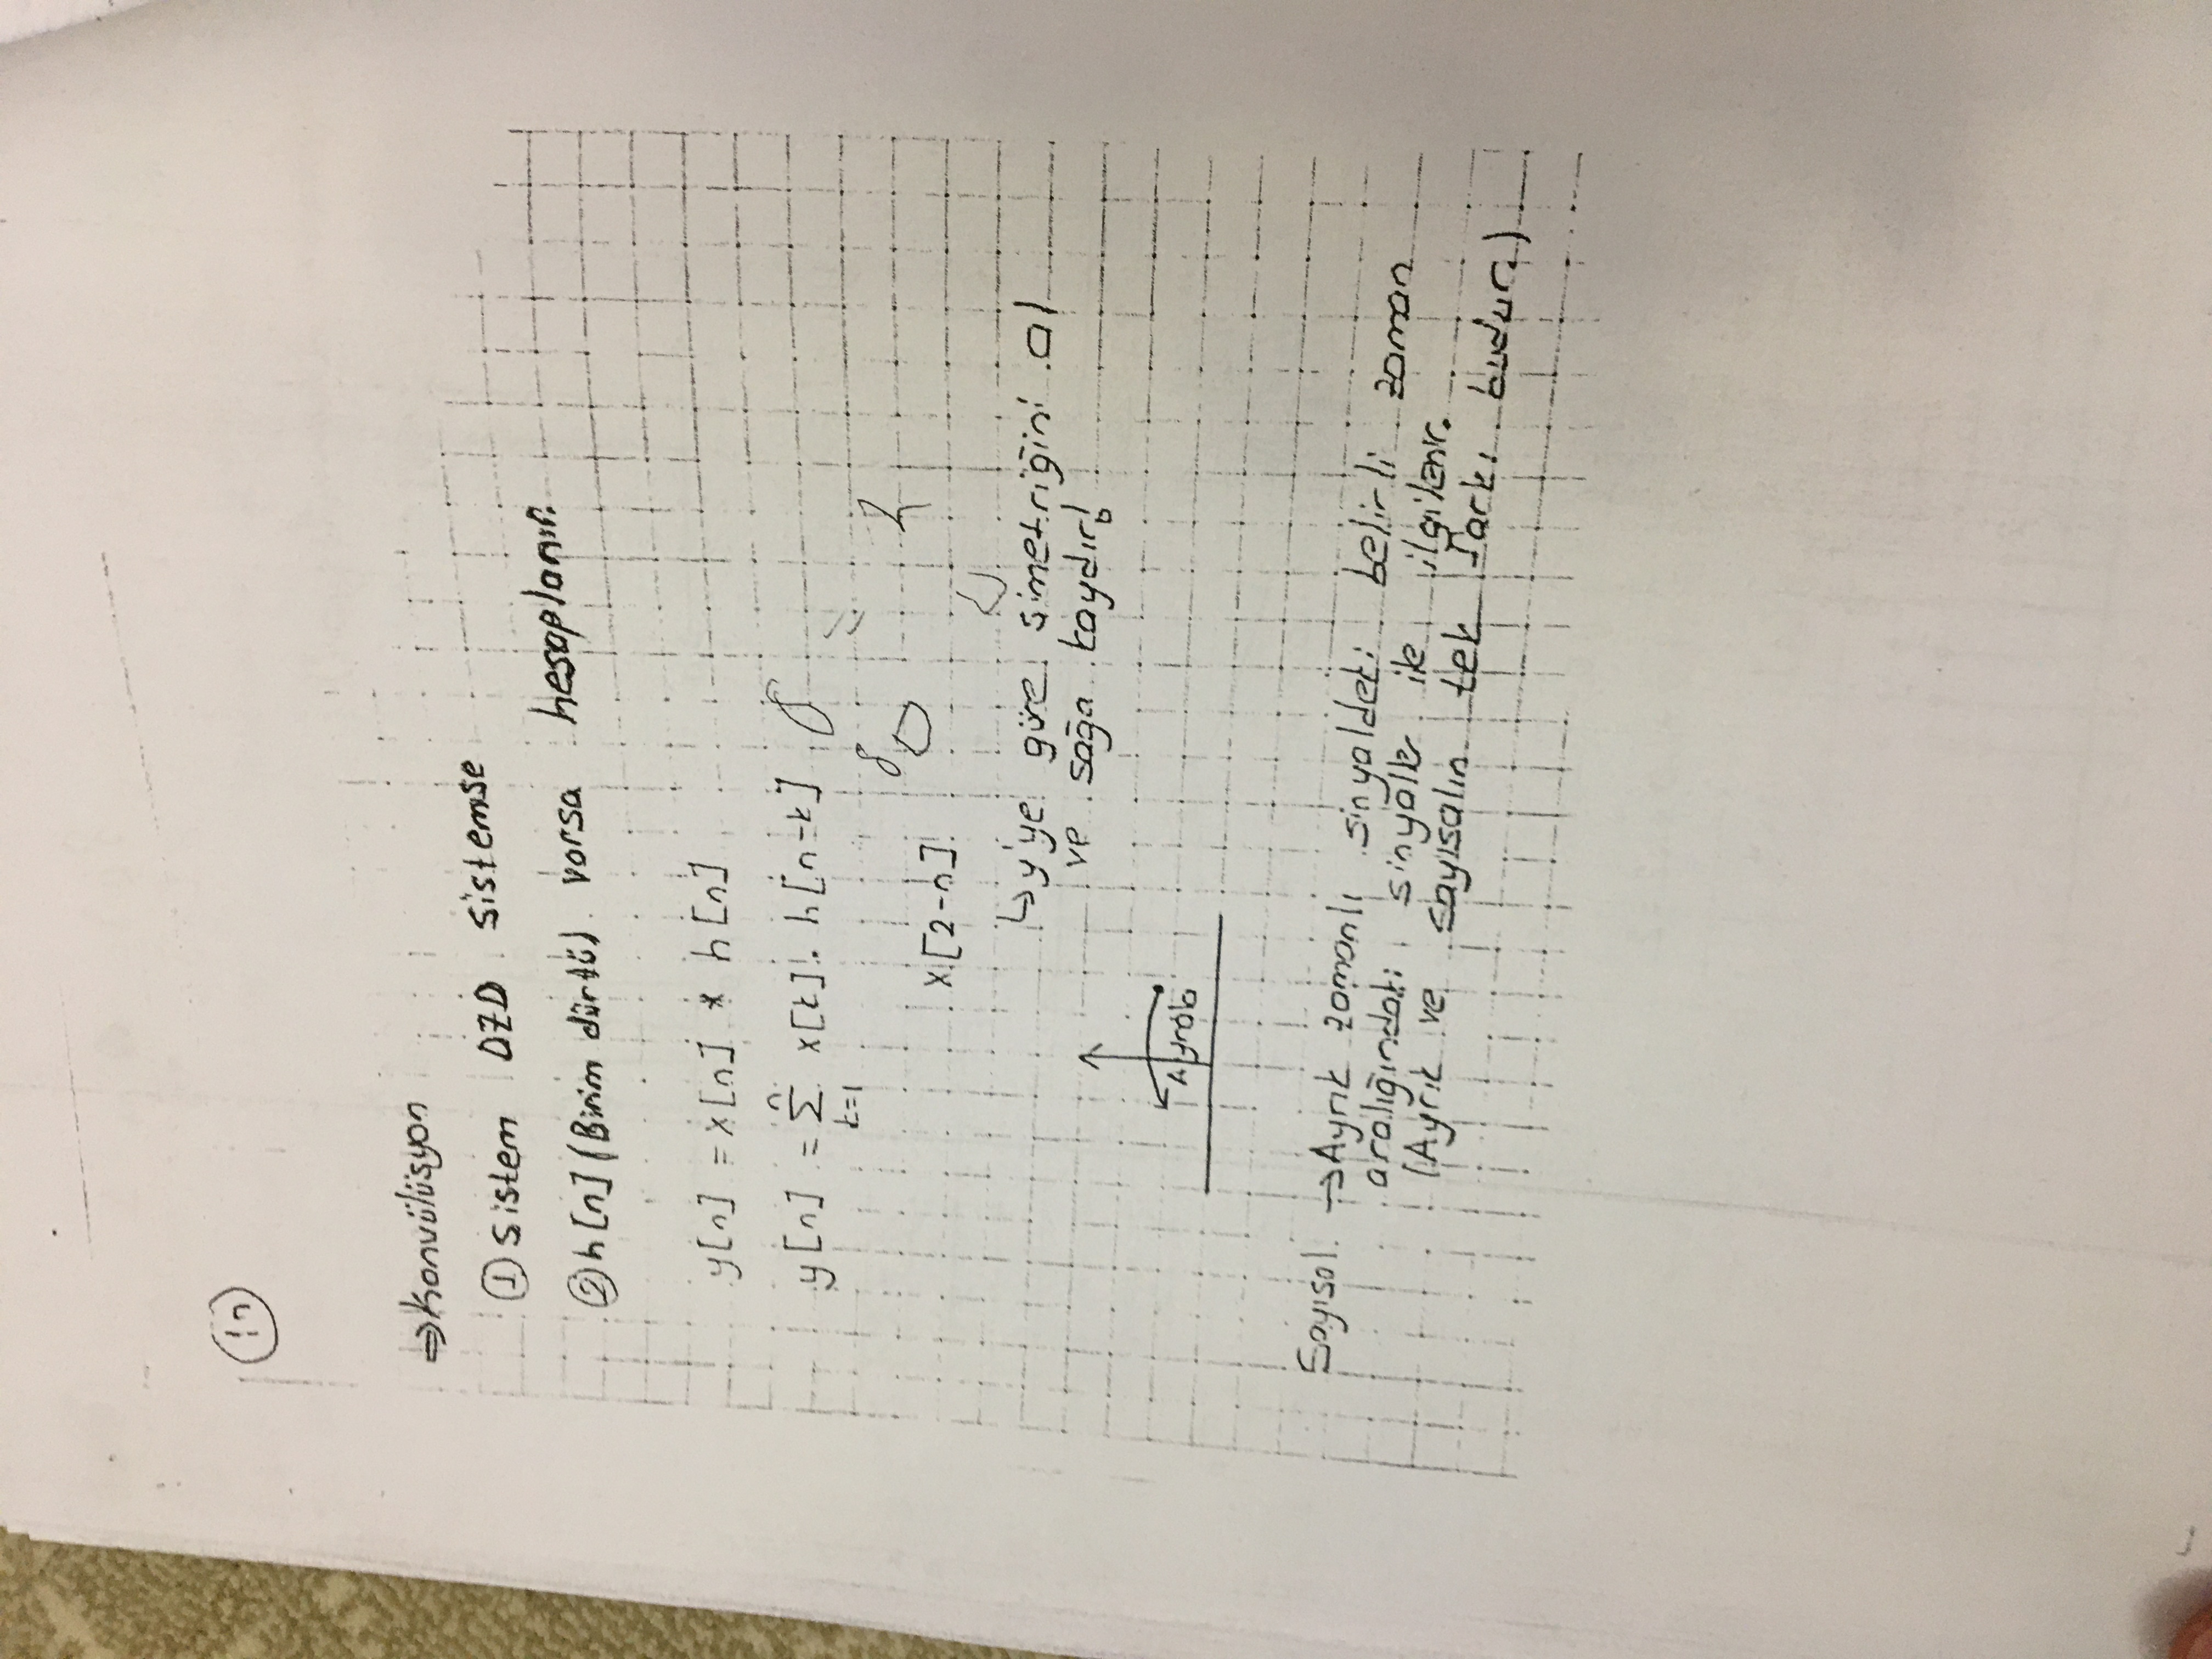 ⇒Konvülüsyon
① Sistem DZD sistemse
② h[n] (Birim dürtü) varsa hesaplanır.
y[n] = x[n] * h[n]
n
y[n] = Σ x[k] . h[n-k]
k=1
x[2-n]
↳ y'ye göre simetriğini al
ve sağa kaydır!
Sayısal → Ayrık zamanlı sinyaldeki belirli zaman
aralığındaki sinyaller ile ilgilenir.
(Ayrık ve sayısalın tek farkı budur.)